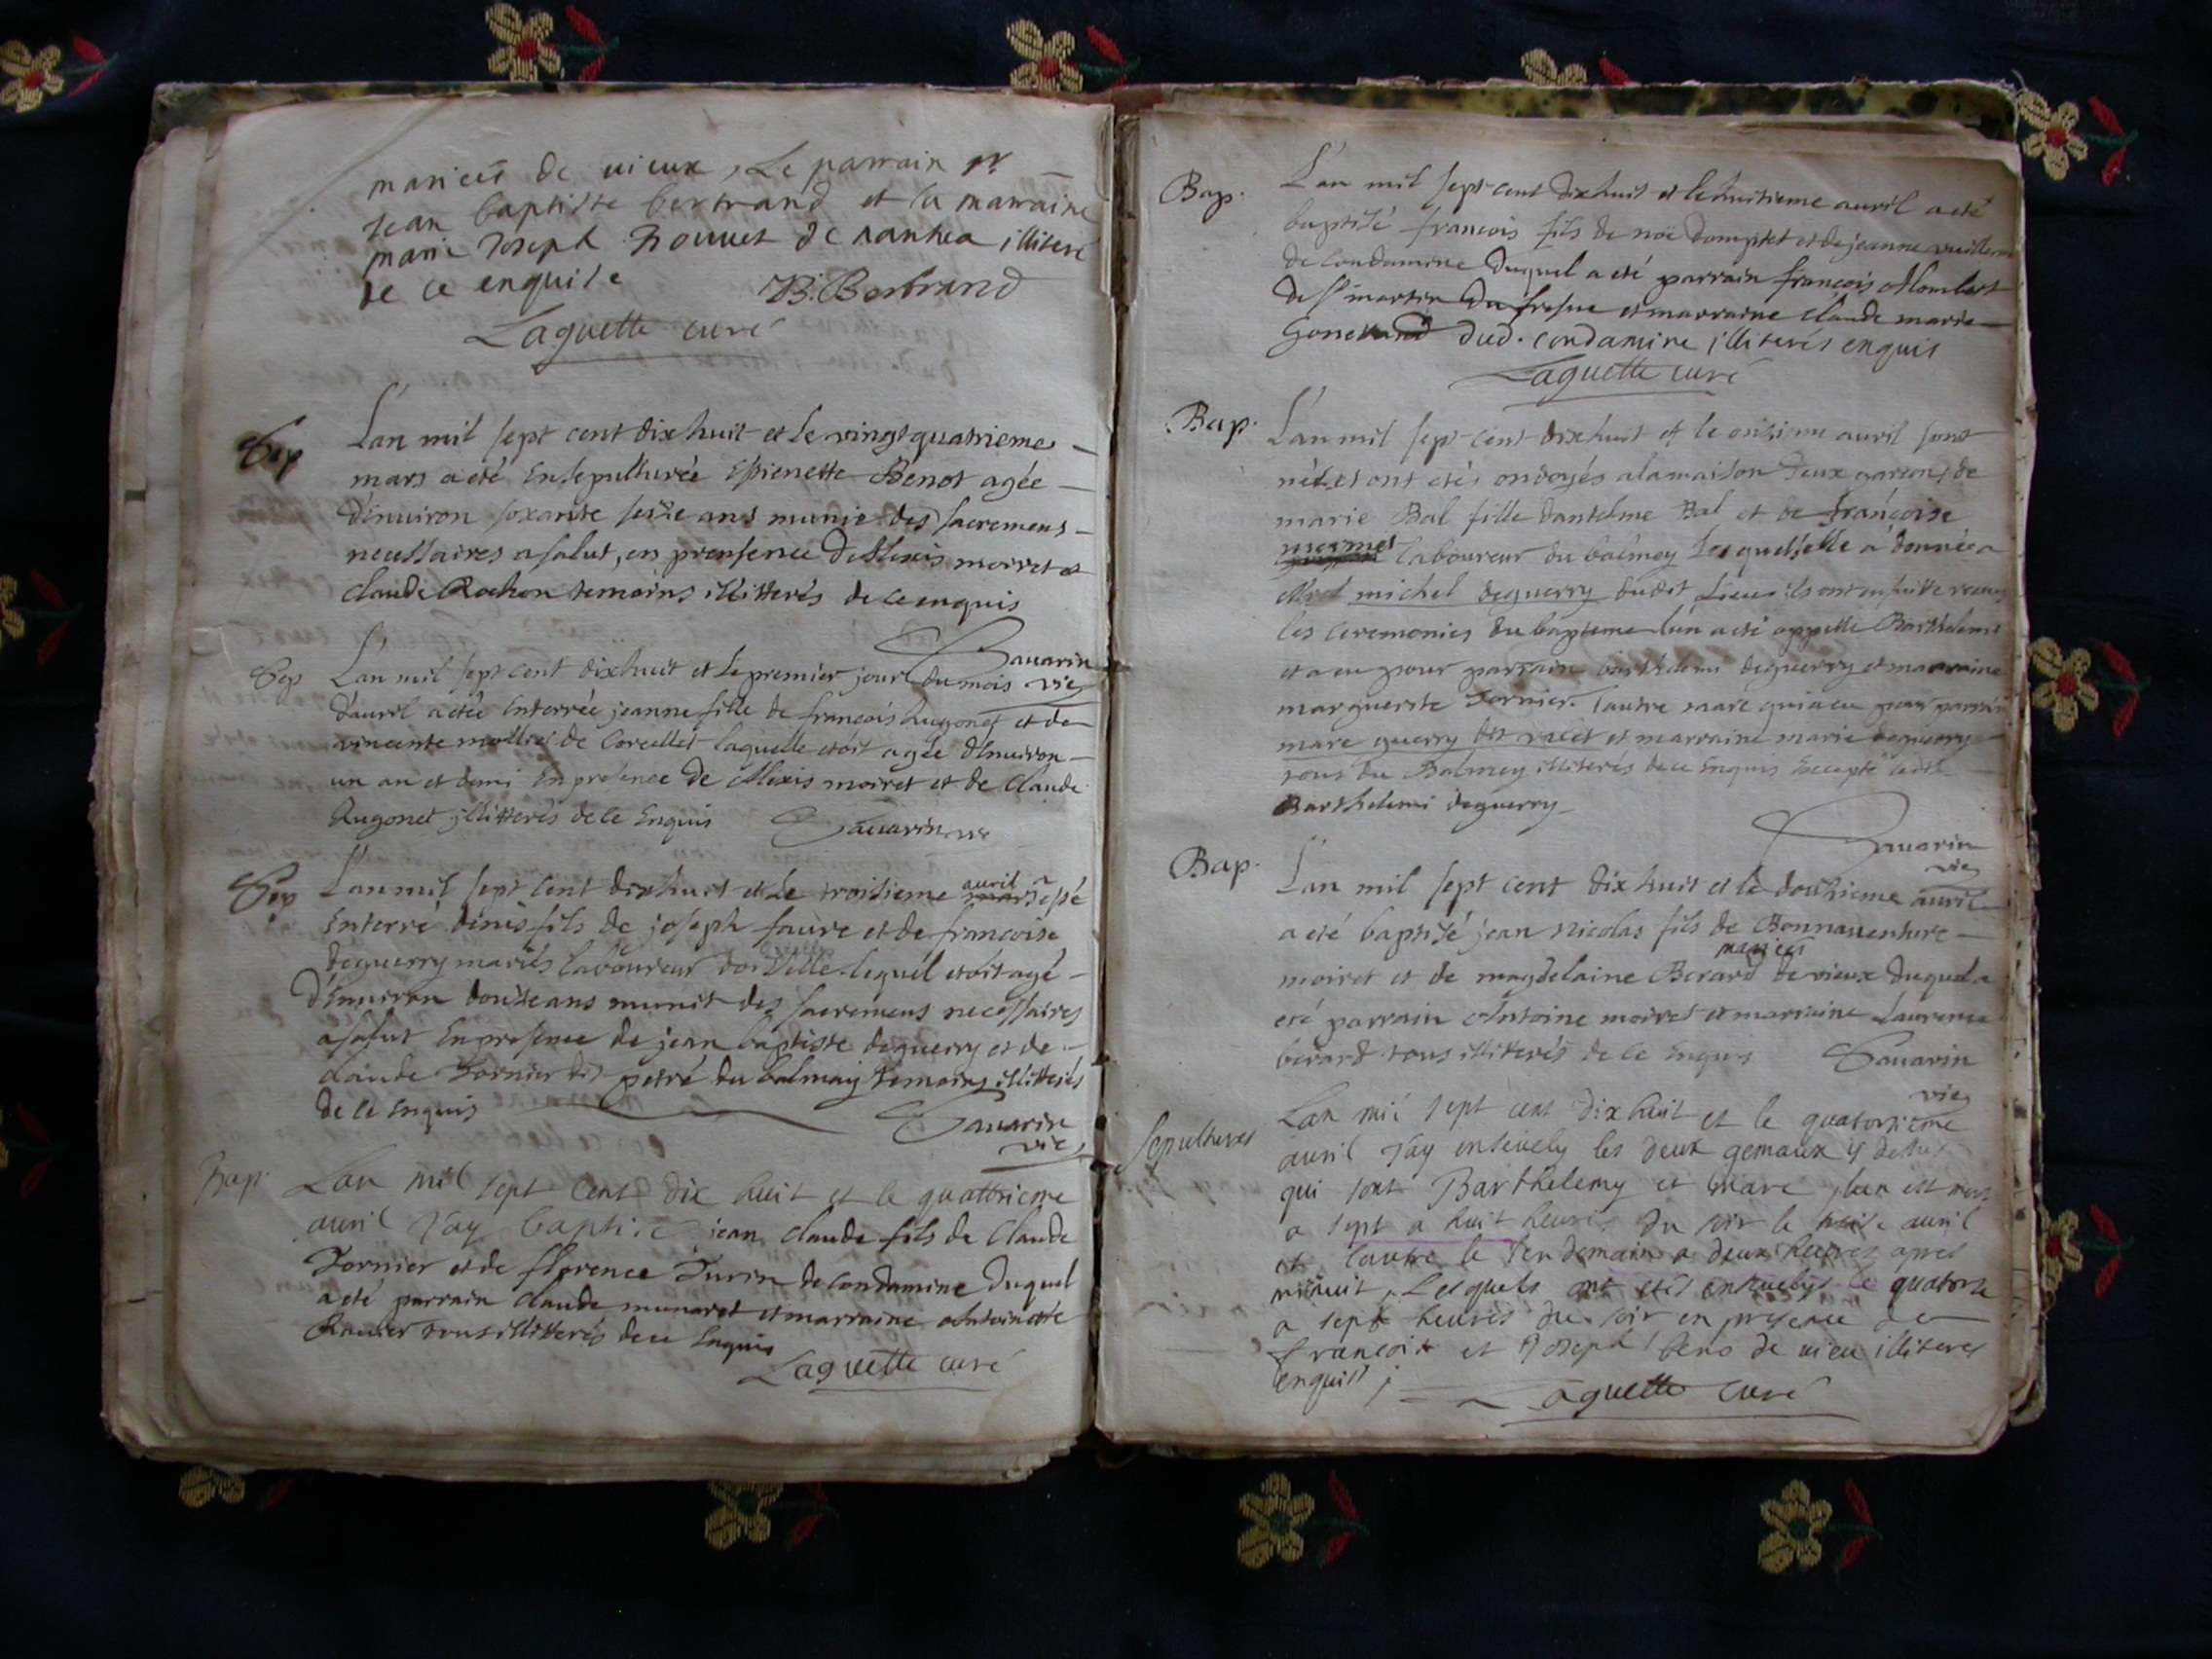 mariees de vieux, Le parrain sr
jean baptiste bertrand et la marraine
marie Joseph Bouvet de nantua illiteré
de ce enquise
B. Bertrand
Laguette curé
Sep
L'an mil sept cent dixhuit et le vingt quatrieme
mars a eté Ensepulturée Estienette Benot agée
d'environ soxante seize ans munie des sacremens
necessaires a salut, en prensence d'Alexis moiret et
claude Rochon temoins illitterés de ce enquis
Savarin
vic
Sep
L'an mil sept cent dixhuit et le premier jour du mois
d'auril a eteé Enterrée jeanne fille de francois hugonet et de
vincente molliet de Corcelles laquelle etoit agée d'Enuiron
un an et demi En presence de Alexis moiret et de Claude
hugonet illitterés de ce Enquis
Savarin vic
Sep
L'an mil sept cent dixhuit et Le troisieme auril mars a esté
Enterré denis fils de joseph faure et de francoise
deguerry mariés laboureur lequel etoit agé
d'Enuiron douse ans munit des sacremens necessaires
a salut En presence de jean baptiste deguerry et de
claude Tornier dit petré du balmay temoins illitterés
de ce Enquis
Savarin
vic
Bap.
L'an mil sept cent dix huit et le quattrieme
auril J'ay baptisé jean claude fils de Claude
Tornier et de florence Turin de condamine duquel
a eté parrain claude munaret et marraine Antoinette
Ravier tous illitterés de ce Enquis
Laguette curé
Bap.
L'an mil sept cent dixhuit et le huitieme auril a eté
baptisé francois fils de noë domptet et de jeanne
de Condamine duquel a eté parrain francois Alombert
de st martin du fresne et marraine claude marie
Gonevand dud. condamine illiterés enquis
Laguette curé
Bap.
L'an mil sept cent dixhuit et le onsieme auril sont
nés et ont etés ondoyés a la maison deux garcons de
marie Bal fille d'antelme Bal et de françoise
mermet laboureur du balmey Lesquels elle a donnée a
michel deguerry dudit Lieux ils ont ensuitte receus
les ceremonies du bapteme l'un a eté appellé Barthelemi
et a eu pour parrain barthelemi deguerry et marraine
marguerite Tornier. l'autre marc qui a eu pour parrain
marc guerry dit racet et marraine marie deguerry
tous du Balmey illiterés de ce Enquis Excepté ledit
Barthelemi deguerry
Savarin
vic
Bap.
L'an mil sept cent dix huit et le dousieme auril
a eté baptisé jean nicolas fils de Bonnauenture
moiret et de magdelaine Berard mariees de vieux duquel a
eté parrain Antoine moiret et marraine Laurence
berard tous illitterés de ce Enquis
Savarin
vic
Sepultures
L'an mil sept cent dix huit et le quatorsieme
auril J'ay ensevely les deux gemaux cy dessus
qui sont Barthelemy et marc, l'un est mort
a sept a huit heures du soir le treise auril
et l'autre le lendemain a deux heures apres
minuit, Lesquels ont etés ensevelys le quatorse
a sept heures du soir en presence de
françois et Joseph beno de vieu illiteres
enquis
Laguette curé